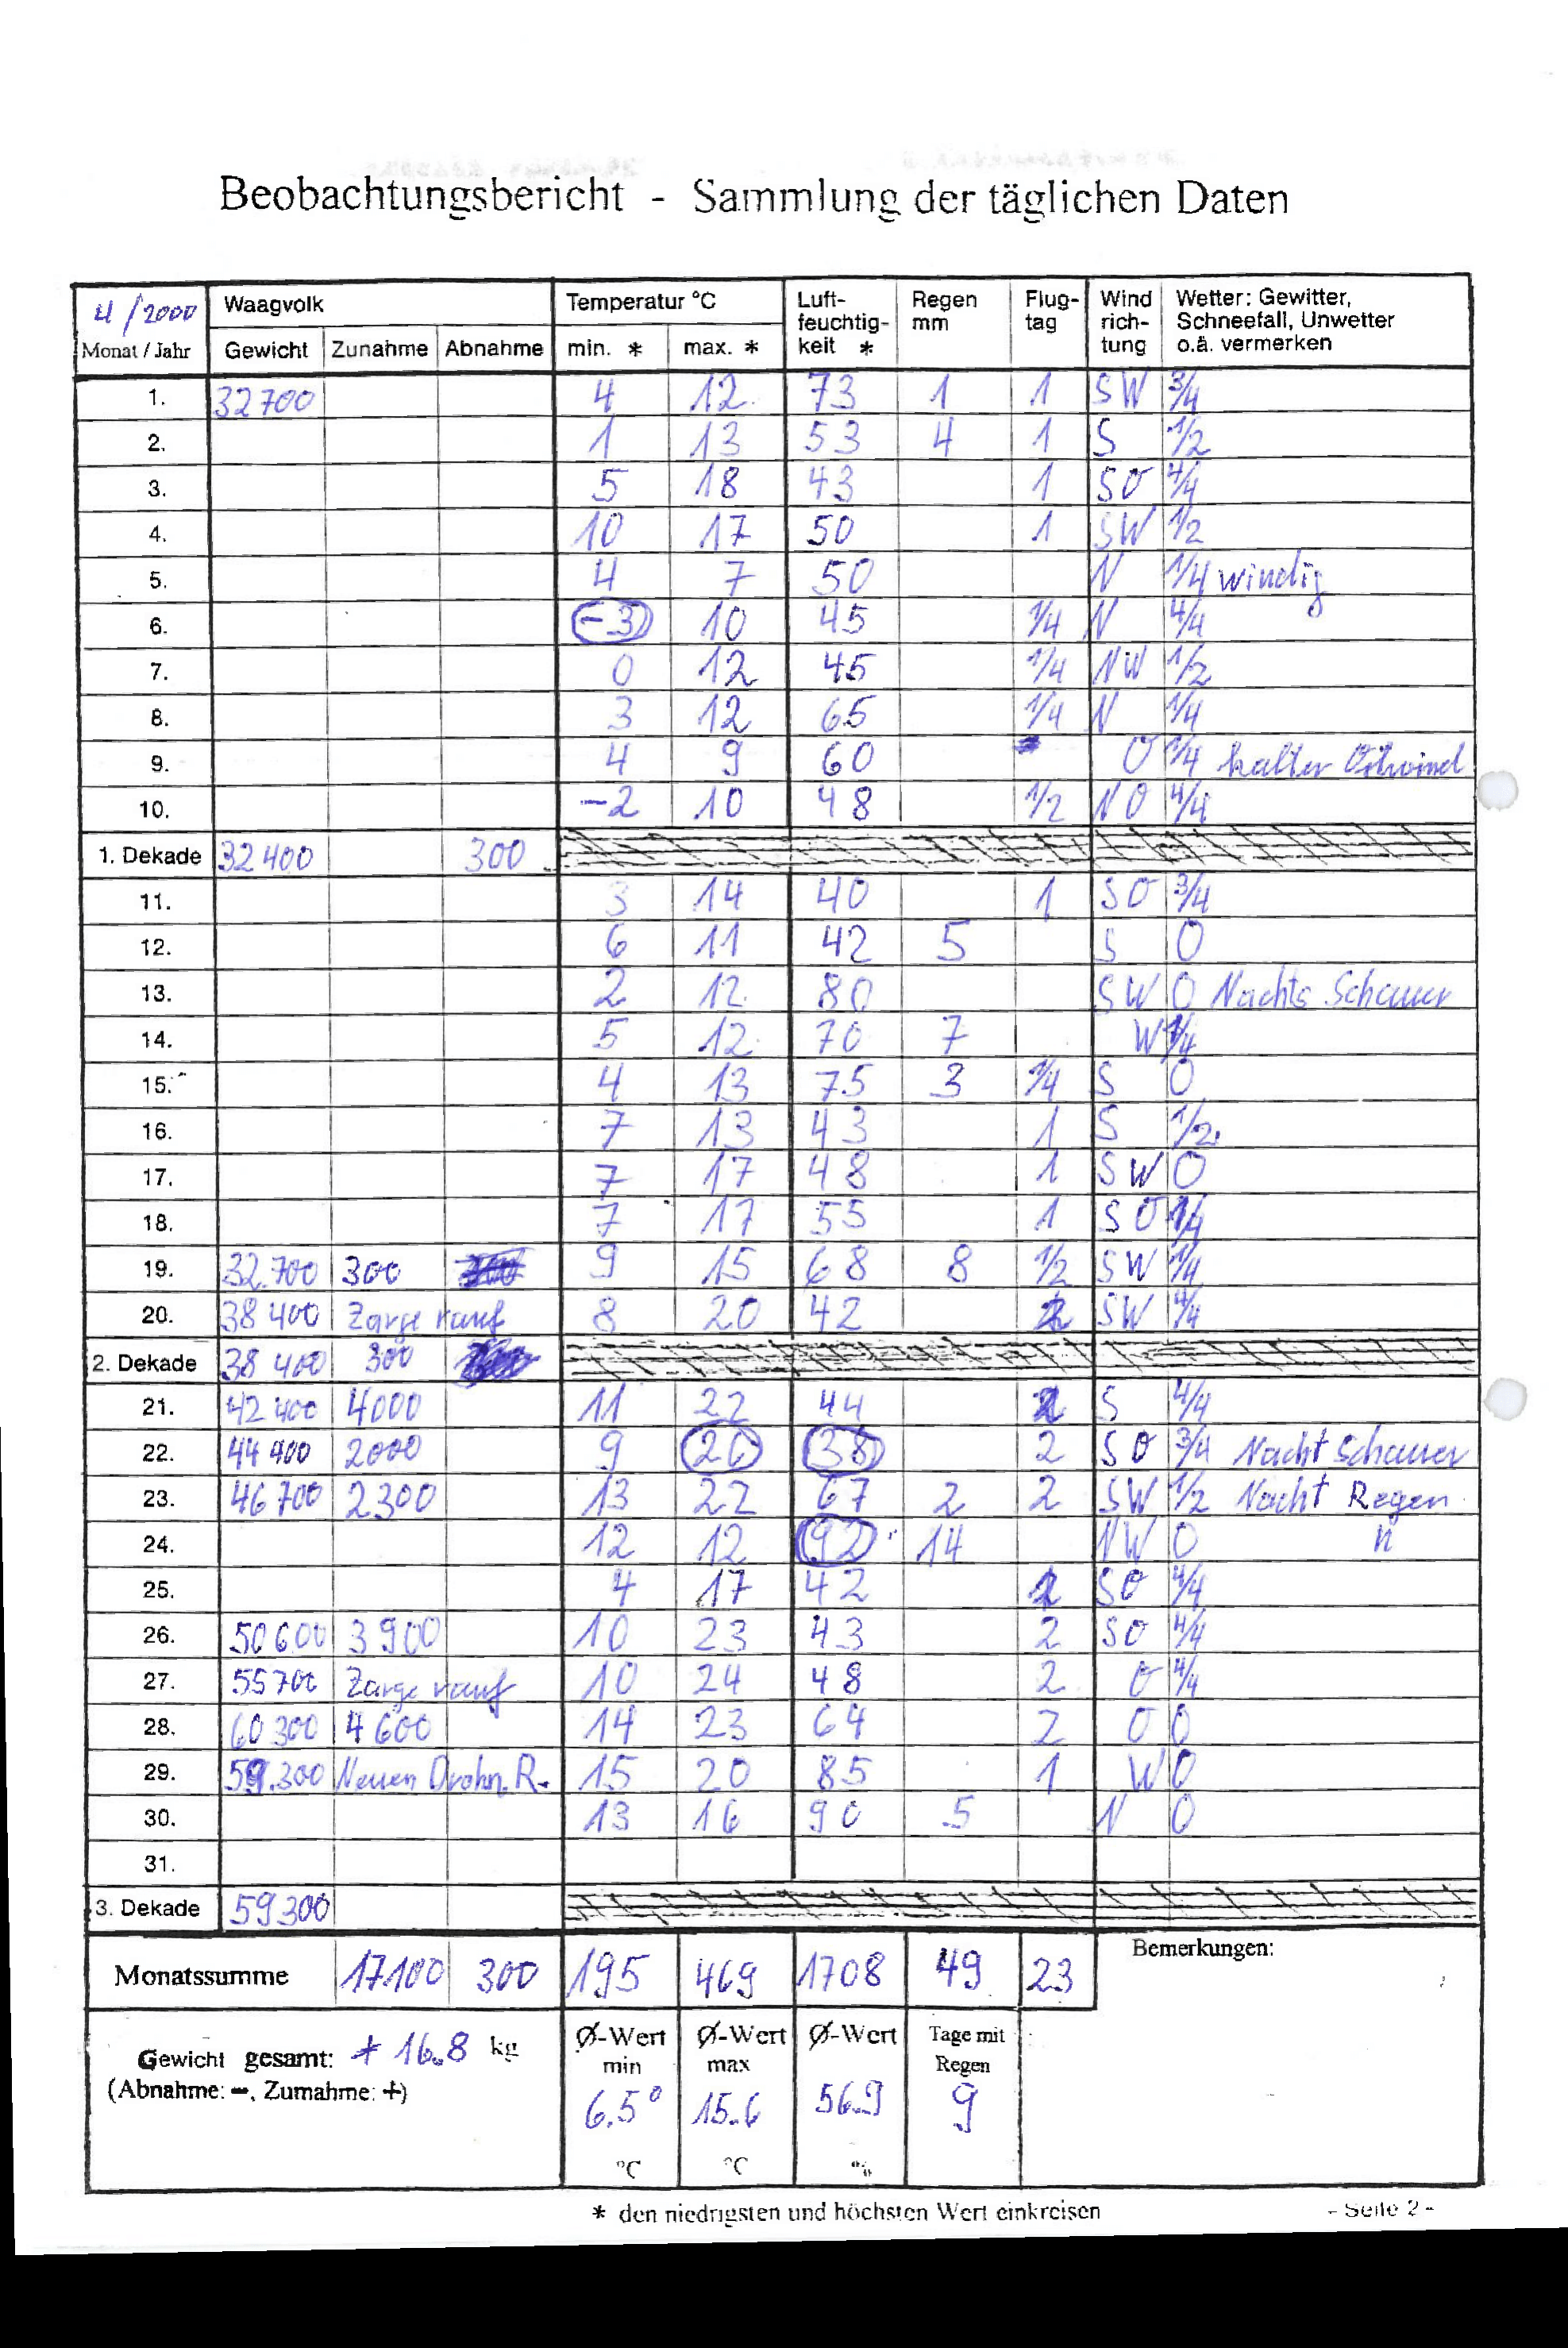 Beobachtungsbericht - Sammlung der täglichen Daten
4/2000 Waagvolk Temperatur °C Luft- Regen Flug- Wind Wetter: Gewitter,
feuchtig- mm tag rich- Schneefall, Unwetter
Monat / Jahr Gewicht Zunahme Abnahme min. * max. * keit * tung o.ä. vermerken
1. 32700 4 12 73 1 1 SW 3/4
2. 1 13 53 4 1 S 1/2
3. 5 18 43 1 SO 4/4
4. 10 17 50 1 SW 1/2
5. 4 7 50 N 1/4 windig
6. -3 10 45 1/4 N 4/4
7. 0 12 45 1/4 NW 1/2
8. 3 12 65 1/4 N 1/4
9. 4 9 60 O 1/4 kalter Ostwind
10. -2 10 48 1/2 NO 4/4
1. Dekade 32400 300
11. 3 14 40 1 SO 3/4
12. 6 11 42 5 S 0
13. 2 12 80 SW 0 Nachts Schauer
14. 5 12 70 7 W 1/4
15. 4 13 75 3 1/4 S 0
16. 7 13 43 1 S 1/2
17. 7 17 48 1 SW 0
18. 7 17 55 1 SO 1/4
19. 32.700 300 9 15 68 8 1/2 SW 1/4
20. 38400 Zarge rauf 8 20 42 2 SW 4/4
2. Dekade 38400 300
21. 42400 4000 11 22 44 2 S 4/4
22. 44400 2000 9 26 38 2 SO 3/4 Nacht Schauer
23. 46700 2300 13 22 67 2 2 SW 1/2 Nacht Regen
24. 12 12 92 14 NW 0 "
25. 4 17 42 2 SO 4/4
26. 50600 3900 10 23 43 2 SO 4/4
27. 55700 Zarge rauf 10 24 48 2 O 4/4
28. 60300 4600 14 23 64 2 O 0
29. 59.300 Neuen Drohn.R. 15 20 85 1 W 0
30. 13 16 90 5 N 0
31.
3. Dekade 59300
Monatssumme 17100 300 195 469 1708 49 23 Bemerkungen:
Ø-Wert Ø-Wert Ø-Wert Tage mit
Gewicht gesamt: + 16.8 kg min max Regen
(Abnahme: -, Zumahme: +) 6.5° 15.6 56.9 9
°C °C %
* den niedrigsten und höchsten Wert einkreisen - Seite 2 -